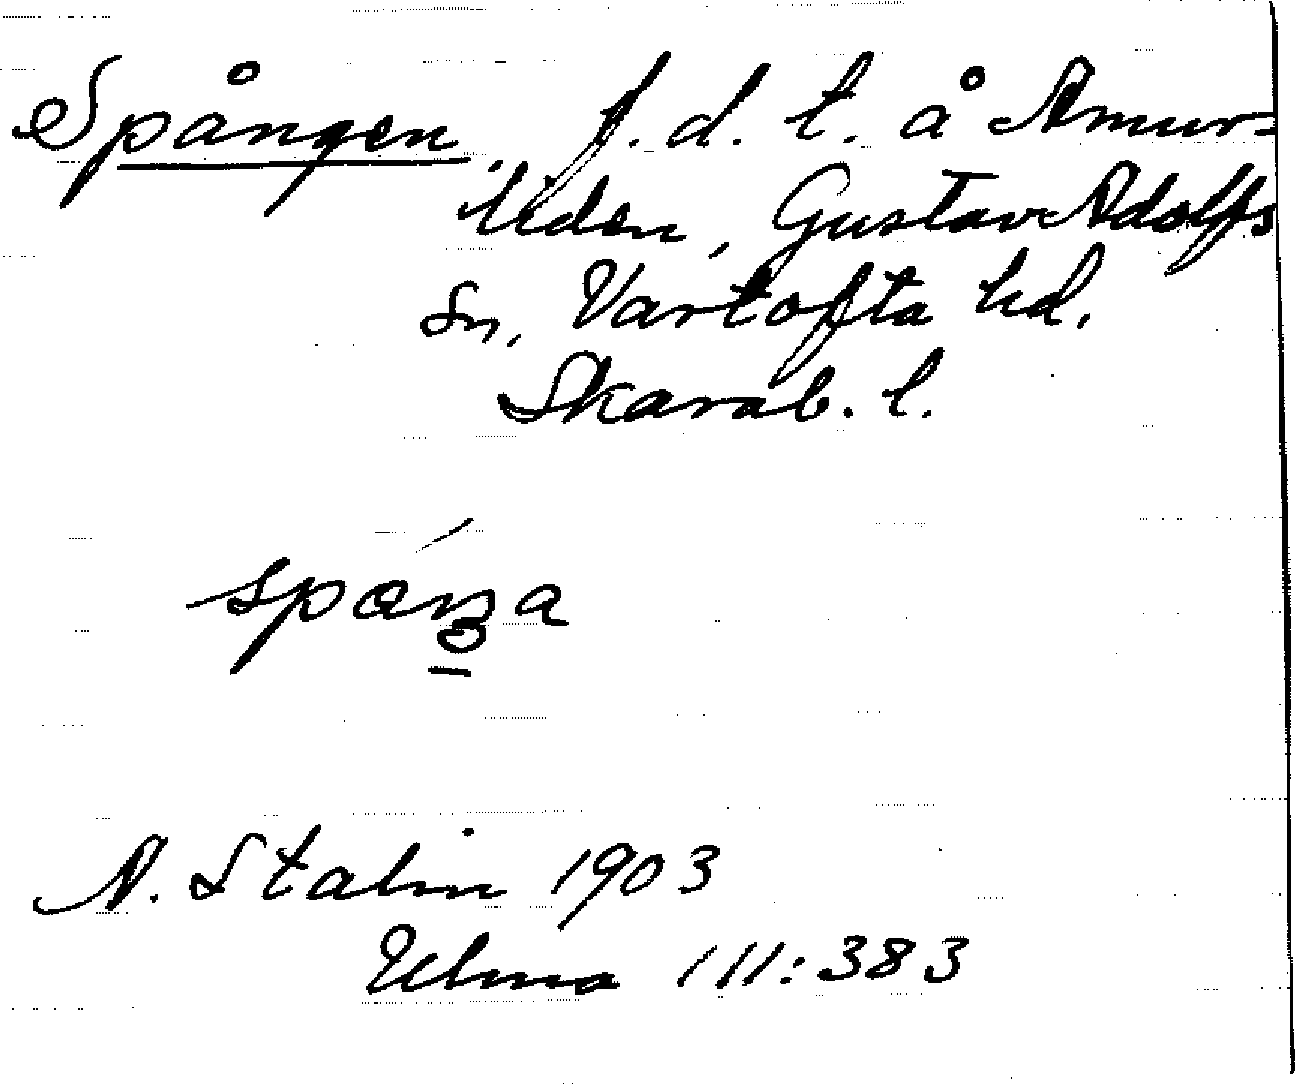 Spången, f. d. t. å Amur-
liden, Gustav Adolfs
sn, Vartofta hd.
Skarab. l.
A. Stalin 1903
Ulma 111:383